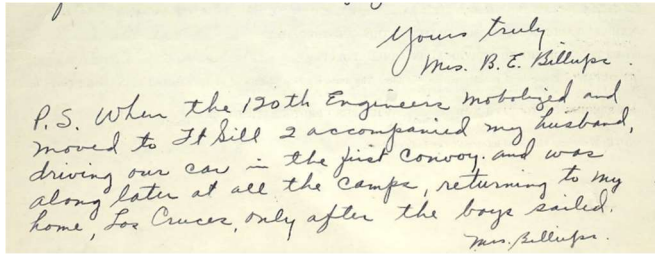 Yours truly
Mrs. B. E. Billups.
P.S. When the 120th Engineers mobolized and
moved to Ft Sill I accompanied my husband,
driving our car in the first convoy. and was
along later at all the camps, returning to my
home, Los Cruces, only after the boys sailed.
Mrs. Billups.